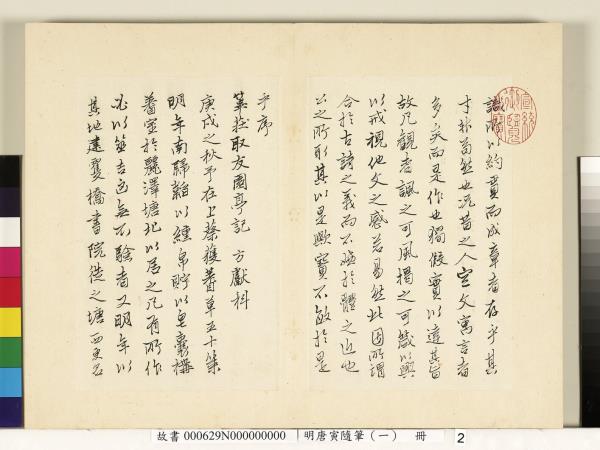 識所以約貫而成章者存乎其
才林苟然也况昔之人空文寓言者
多矣而是作也獨假實以達其旨
故凡觀者諷之可風揭之可箴以興
以戒視他文之感若易然此固所謂
合於古詩之義而不極於體之近也
公之所取其以是與寶不敏於是
乎序
筮莊取友園亭記 方獻科
庚戌之秋予在上蔡獲蓍草五十莖
明年南歸韜以纁帛貯以皂囊櫝
蓍室於麗澤塘北以居之凡有所作
必以筮吉凶無不驗者又明年以
其地建聚橋書院徙之塘西
故書 000629N000000000 明唐寅隨筆(一) 冊 2